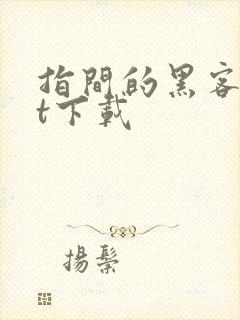 指間的黑客
t下載
揚鬃